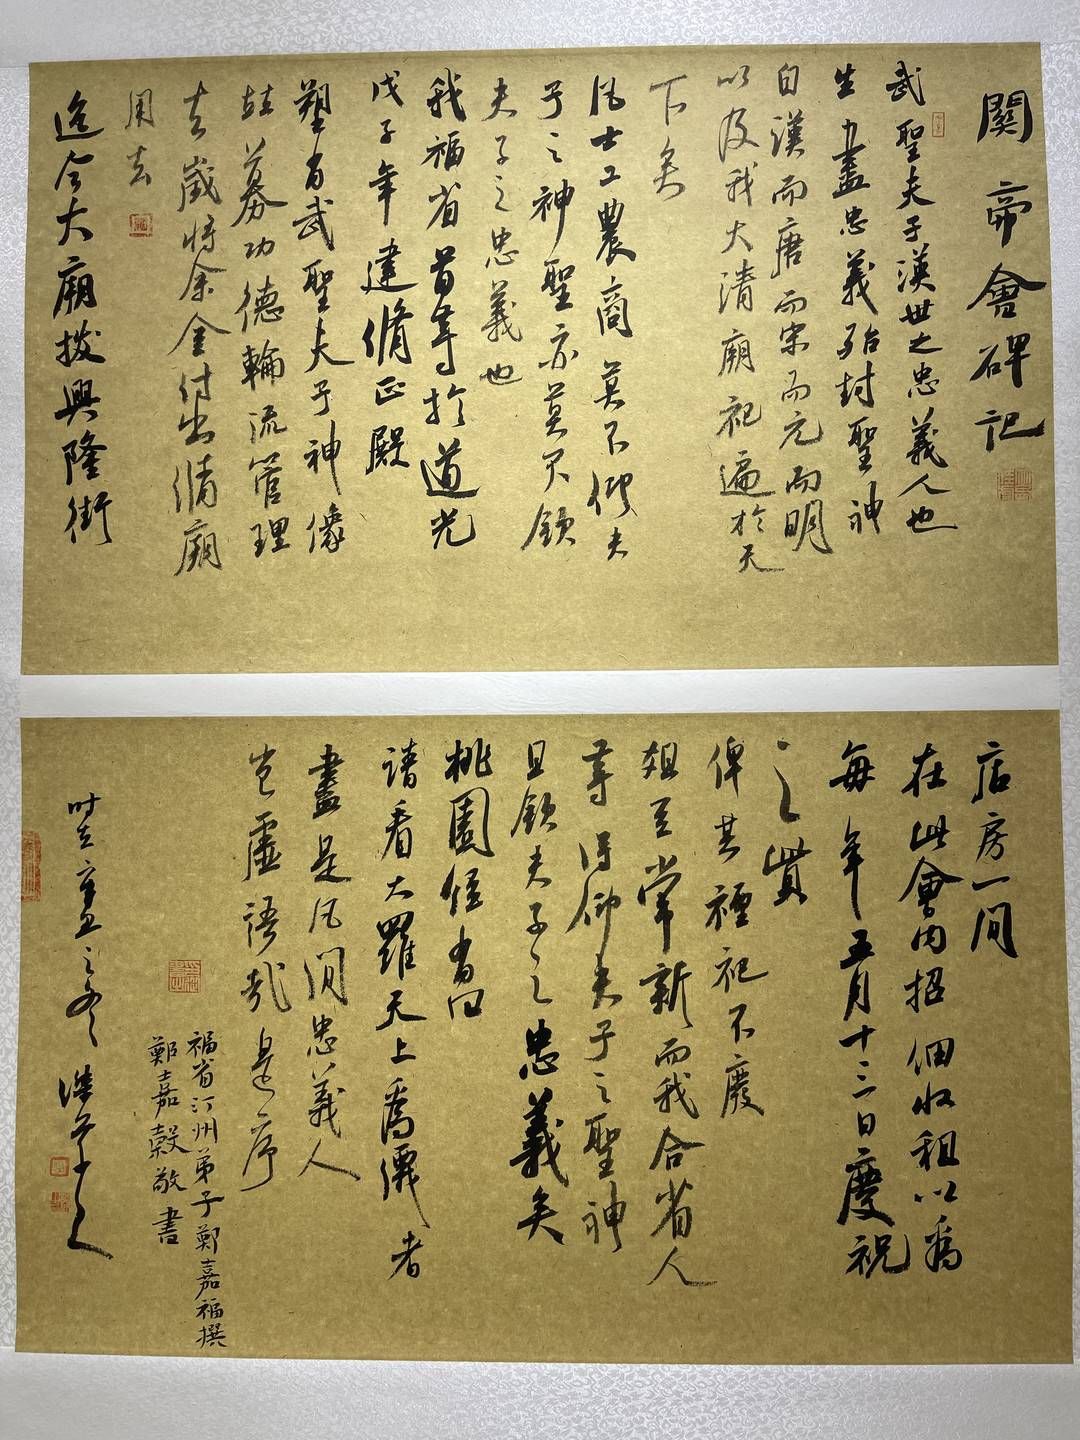 關帝會碑記
武聖夫子漢世之忠義人也
生盡忠義殆封聖神
自漢而唐而宋而元而明
以及我大清廟祀遍於天
下矣
凡士工農商莫不仰夫
子之神聖亦莫不欽
夫子之忠義也
我福省首等於道光
戊子年建脩正殿
塑百武聖夫子神像
娃募功德輪流管理
去歲將余金付出脩廟
用去
迄今大廟撥興隆街
店房一間
在此會內招佃收租以為
每年五月十三日慶祝
之資
俾其禋祀不廢
俎豆常新而我合省人
等得仰夫子之聖神
且欽夫子之忠義矣
桃園經書曰
請看大羅天上為僊者
盡是凡間忠義人
豈虛語哉是序
福省汀州弟子鄭嘉福撰
鄭嘉穀敬書